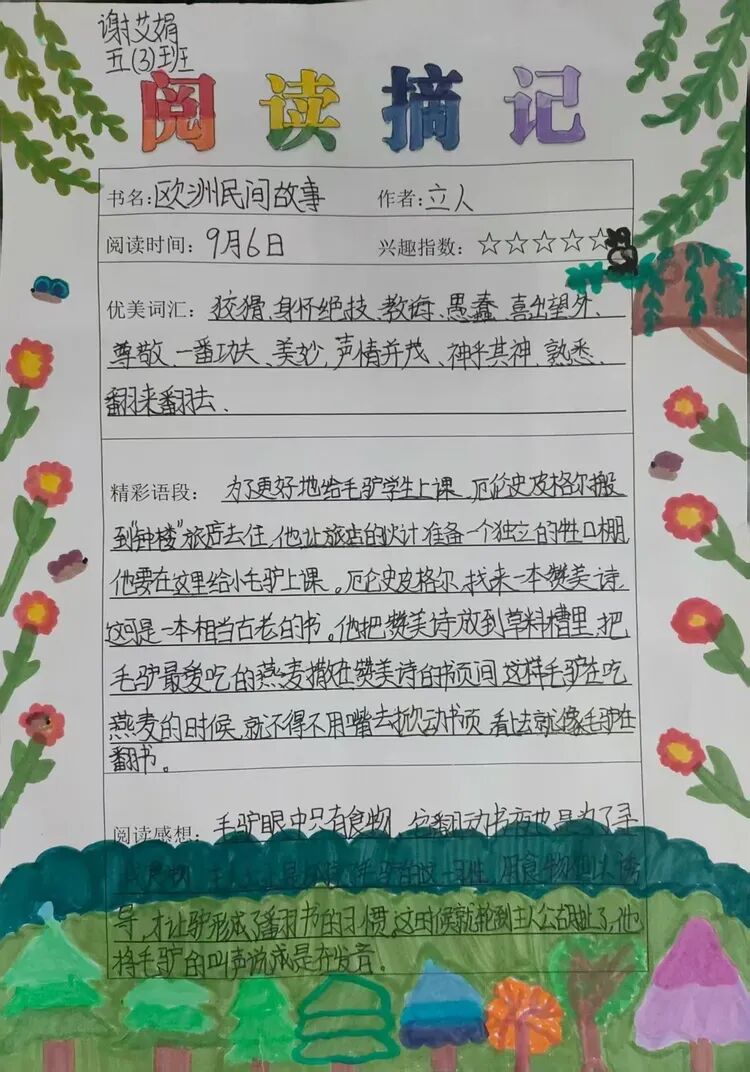 谢艾娟
五(3)班
阅读摘记
书名:欧洲民间故事 作者:立人
阅读时间:9月6日 兴趣指数:☆☆☆☆☆
优美词汇:狡猾、身怀绝技、教诲、愚蠢、喜出望外、
尊敬、一番功夫、美妙,声情并茂、神乎其神、熟悉、
翻来翻去、
精彩语段:为了更好地给毛驴学生上课,厄伦史皮格尔搬
到“钟楼”旅店去住,他让旅店的伙计准备一个独立的牲口棚,
他要在这里给小毛驴上课。厄伦史皮格尔,找来一本赞美诗,
这可是一本相当古老的书。他把赞美诗放到草料槽里,把
毛驴最爱吃的燕麦撒在赞美诗的书页间,这样毛驴在吃
燕麦的时候,就不得不用嘴去掀动书页,看上去就像毛驴在
翻书。
阅读感想:毛驴眼中只有食物,它翻动书页也是为了寻
用食物加以诱
导,才让驴形成了翻书的习惯。这时候就轮到主人公胡扯了,他
将毛驴的叫声说成是在发音。